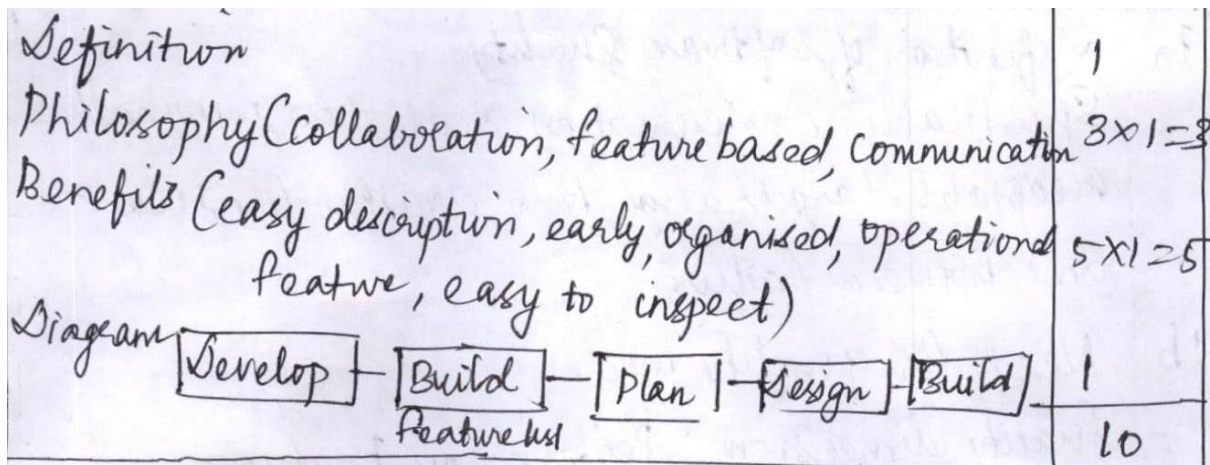 Definition 1
Philosophy (collaboration, feature based, communication 3×1=3
Benefits (easy description, early, organised, operational 5×1=5
feature, easy to inspect)
Diagram Develop Build Plan Design Build 1
Feature list
10